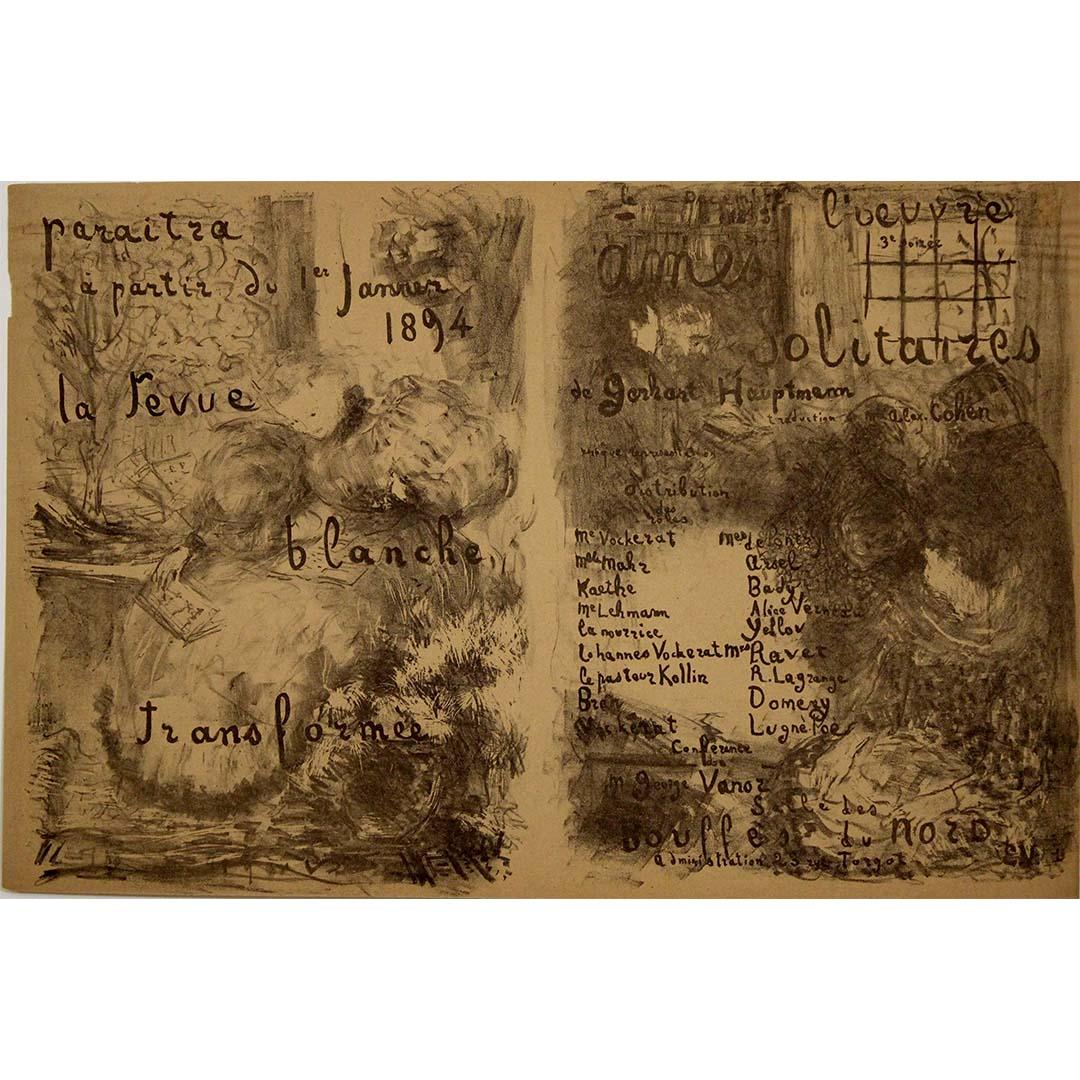 paraitra
à partir du 1er Janvier
1894
la revue
blanche
transformée
l'oeuvre
3e soirée
âmes
solitaires
de Gerhart Hauptmann
traduction de Mr Alex. Cohen
unique représentation
distribution
des
rôles
Me Vockerat Mes
Mlle Mahr
Kaethe Bady
Me Lehmann Alice
la nourrice Yellov
Iohannes Vockerat Mrs Ravet
le pasteur Kollin R. Lagrange
Domeny
Vockerat Lugné Poe
Conférence
de
Mr George Vanor
Salle des
bouffes du NORD
administration 23 rue Turgot
E.V.